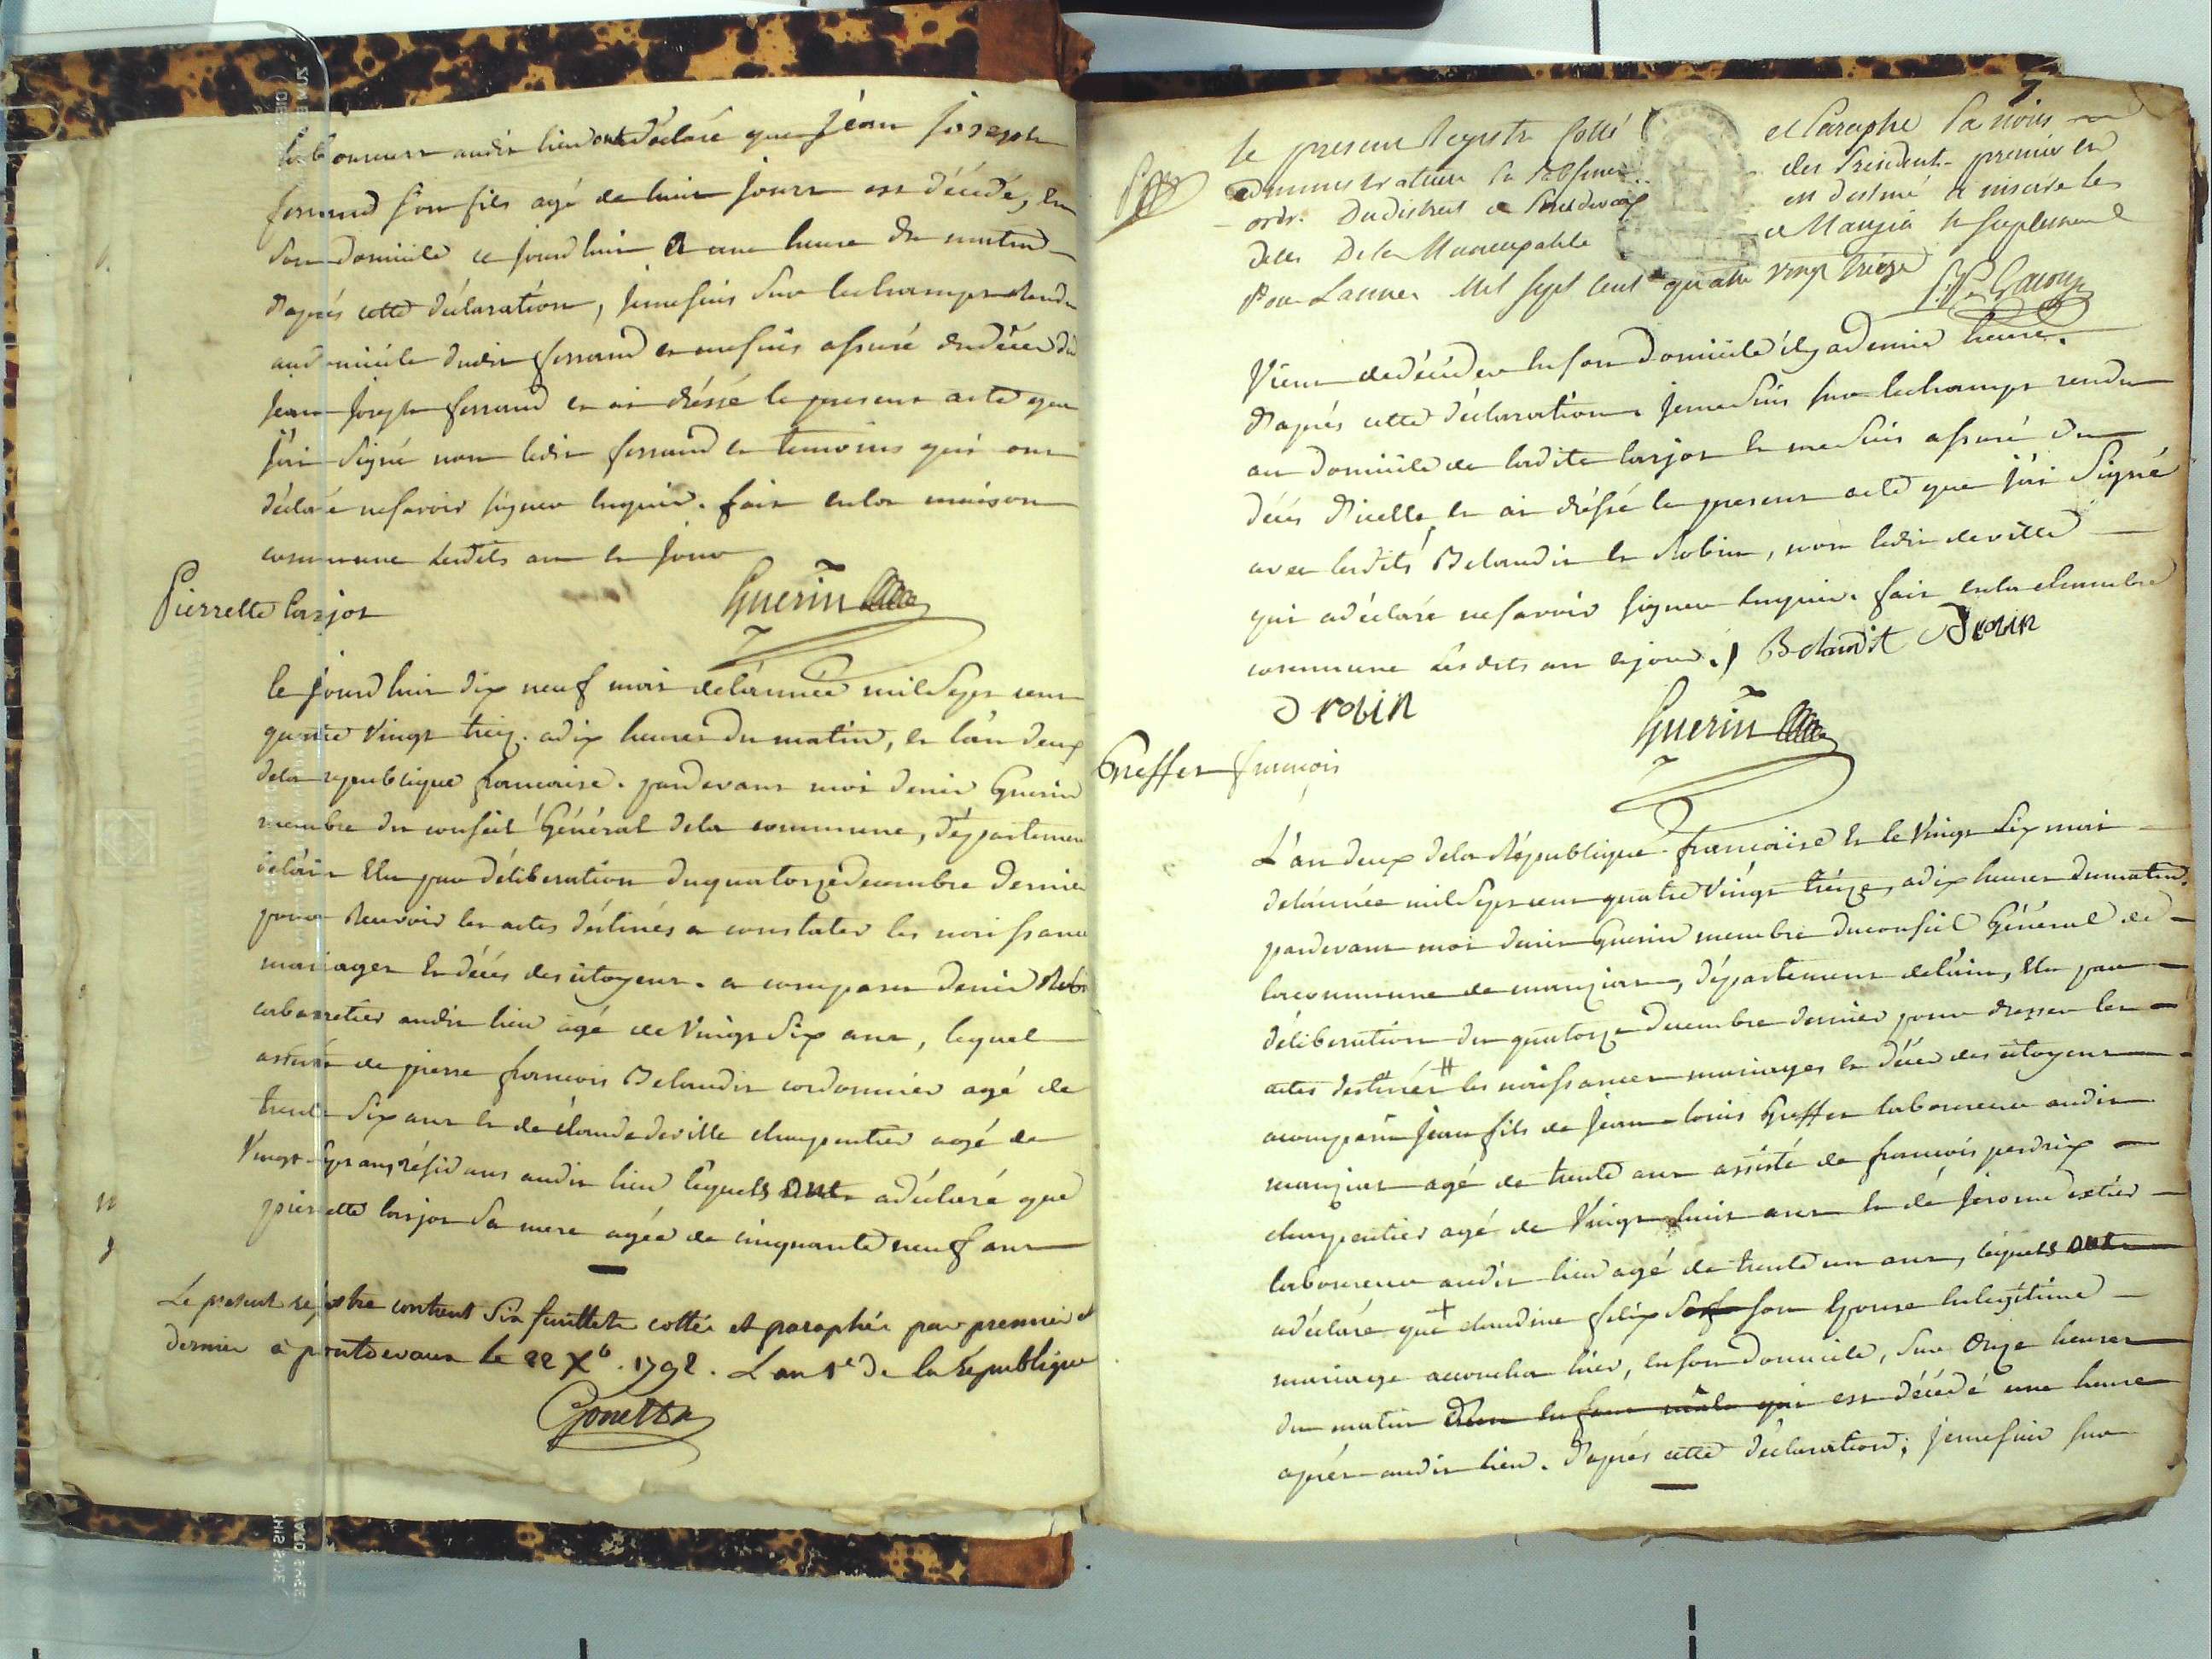 laboureurs audit lieu ont déclaré que jean joseph
ferrand son fils agé de huit jours est décédé, en
son domicile ce jourd'huit a une heure du matin
d'aprés cette déclaration, jemesuis sur lechamps rendu
audomicile dudit ferrand et mesuis assuré dudécés du
jean joseph ferrand et ai dréssé le present acte que
j'ai signé non ledit ferrand et temoins qui ont
déclaré nesavoir signer enquis. fait enla maison
commune lesdits an et jour
Guerin
Pierrette larjot
le jourd huit dix neuf mai delánnée mil sept cent
quatre vingt treiz. adix heures du matin, et l'an deux
dela republique francaise. pardevant moi denis Guerin
membre du conseil Général dela commune, département
delain Elu par déliberation duquatorze decembre dernier
pour recevoir les actes déstinés a constater les naissance
mariages et décés des citoyens. a comparu denis Robi
cabaretier audit lieu agé de vingt six ans, lequel
assisté de pierre francois Belaudit cordonnier agé de
trente six ans et de claude deville charpentier agé de
vingt-sept ans, résidans audit lieu lequels ont adéclaré que
pierrette larjot sa mere agée de cinquante neuf ans
Le present registre contient six feuillets cottés et paraphés par premier et
dernier a pontdevaux le 22 Xb. 1792. L an 1e de la République
Gonetta
7
le present Registre Cotté et Paraphé Par nous
administrateur des President premier en
ordr. Dudistrict de Pontdevaux est destiné a inscrire les
Deces De la Municipalite de Manziat Supplement
Pour Lannee Mil sept cent quatre vingt treize
vient dedécéder enson domicile ilyademie heure.
d'aprés cette déclaration. jemesuis sur lechamps rendu
au domicile de ladite larjot et mesuis assuré du
décés d'icelle, et ai dréssé le present acte que j'ai signé
avec lesdits Belaudit et Robin, non ledit deville
qui adéclaré nesavoir signer enquis. fait enla chambre
commune lesdits an et jour. Belaudit D robin
D robin
Guerin
Greffet francois
L'an deux dela République francaise et le vingt six mai
delánnée mil sept cent quatre vingt treize, adix heures dumatin.
pardevant moi denis Guerin membre duconseil Général de
lacommune de manziat, département delain, Elu par
déliberation du quatorze decembre dernier pour dresser les
actes destinés # les naissances mariages et décés des citoyens
acomparu jean fils de jean-louis Greffet laboureur audit
manziat agé de trente ans assisté de francois perdrix
charpentier agé de vingt huit ans et de jérome
laboureur audit lieu agé de trente un ans, lequels ont
adéclaré que + claudine felix son Epouse enlegitime
mariage accoucha hier, enson domicile, sur onze heures
du matin d'un enfant mâle qui est décédé une heure
aprés audit lieu. d'aprés cette déclaration, jemesuis sur